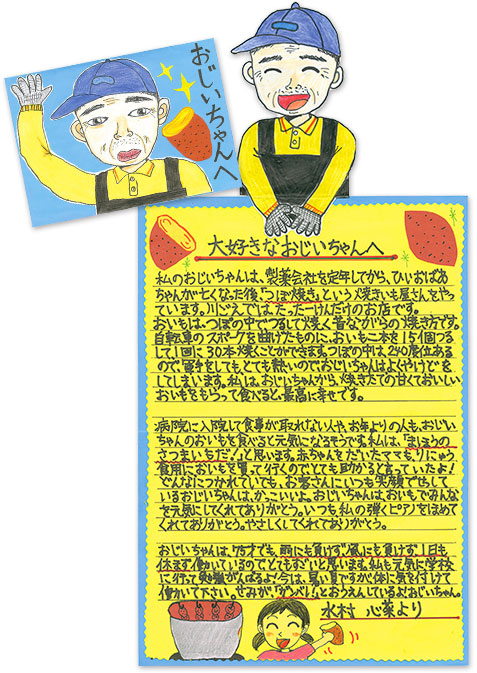 おじいちゃんへ
大好きなおじいちゃんへ
私のおじいちゃんは、製薬会社を定年してから、ひいおばあ
ちゃんが亡くなった後「つぼ焼き」という焼きいも屋さんをやっ
ています。川ごえでは、たった一けんだけのお店です。
おいもは、つぼの中でつるして焼く昔ながらの焼き方です。
自転車のスポークを曲げたものに、おいも二本を15個つる
して1回に30本焼くことができます。つぼの中は、240度位ある
ので、軍手をしてもとても熱いので、おじいちゃんはよくやけどを
してしまいます。私は、おじいちゃんから、焼きたての甘くておいしい
おいもをもらって食べると、最高に幸せです。
病院に入院して食事が取れない人や、お年よりの人も、おじい
ちゃんのおいもを食べると元気になるそうです。私は、「まほうの
さつまいもだ!」と思います。赤ちゃんをだいたママも、りにゅう
食用においもを買って行くのでとても助かると言っていたよ!
どんなにつかれていても、お客さんにいつも笑顔でせっして
いるおじいちゃんは、かっこいいよ。おじいちゃんは、おいもでみんな
を元気にしてくれてありがとう。いつも私の弾くピアノをほめて
くれてありがとう。やさしくしてくれてありがとう。
おじいちゃんは、75才でも、雨にも負けず風にも負けず、1日も
休まず働いているのでとてもすごいと思います。私も元気に学校
に行って勉強がんばるよ!今は、暑い夏ですが体に気を付けて
働いて下さい。せみが、「ガンバレ!」とおうえんしているよ!おじいちゃん。
水村 心菜より